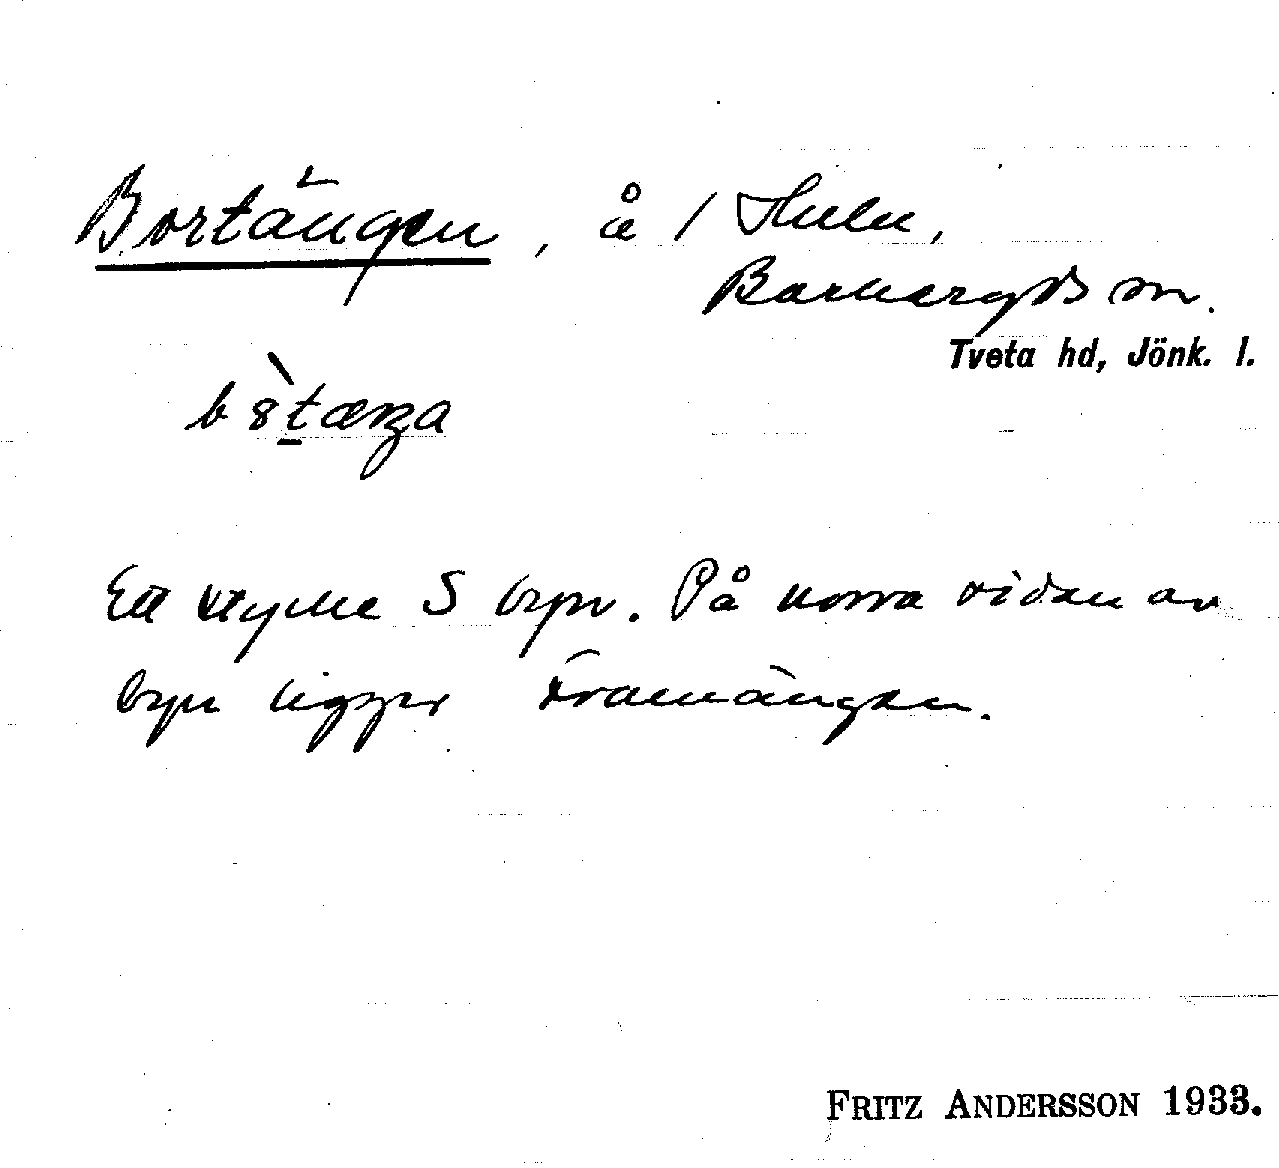 Bortängen, å / Hulu,
Barkeryds sn.
Tveta hd, Jönk. l.
Ett stycke S byn. På norra sidan av
byn ligger Framängen.
FRITZ ANDERSSON 1933.